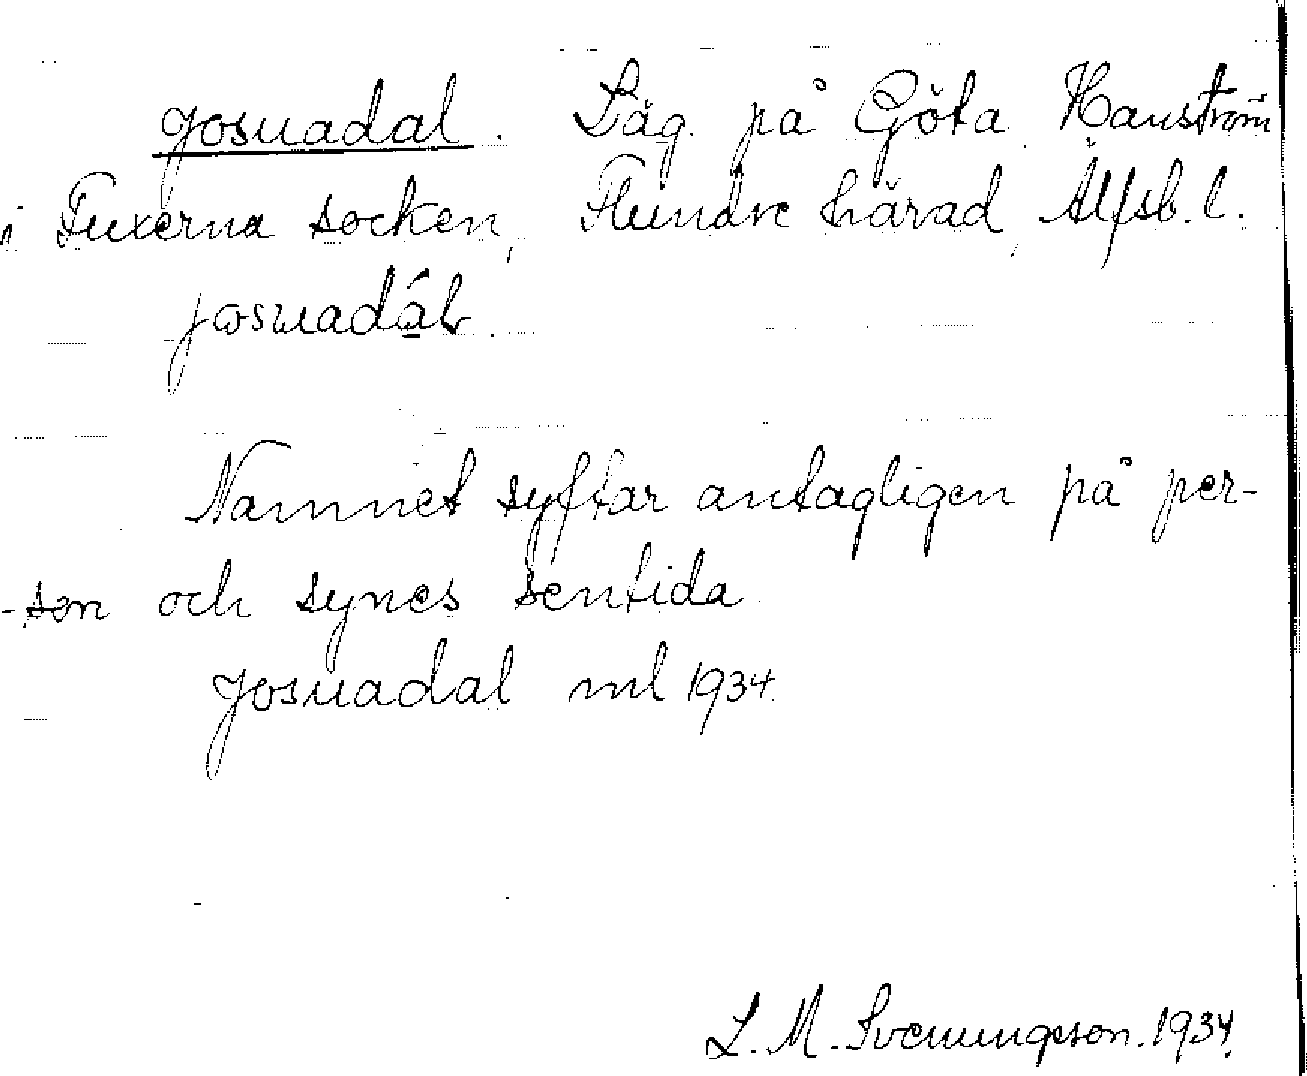 Josuadal. Läg. på Göta Hanström
i Fuxerna socken, Flundre härad, Älfsb. l.
josuadál
Namnet syftar antagligen på per-
-son och synes sentida
Josuadal ml 1934.
L. M. Svenungsson. 1934.